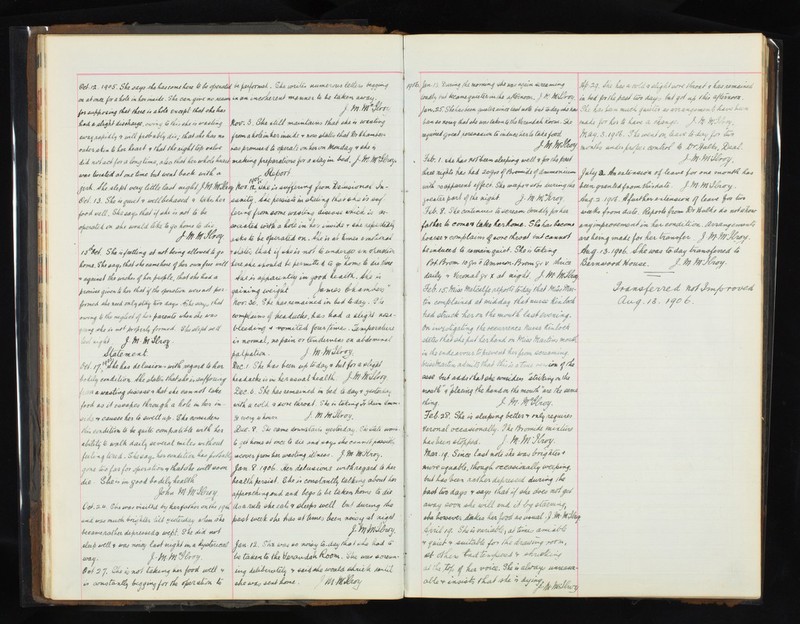 Oct. 12. 1905. She says she has come here to be operated
on at once for a hole in her inside. She can give no reason
for supposing that there is a hole except that she has
had a slight discharge, owing to this she is wasting
away rapidly & will probably die, that she has no
sensation in her heart & that the night before she
did not sleep for a long time, also that her whole
was located at one time but went back with a
jerk. She slept very little last night. J. M. McIlroy
Oct. 13. She is quiet & well behaved & takes her
food well. She says that if she is not to be
operated on she would like to go home to die.
J. M. McIlroy
15th Oct. She is fretting at not being allowed to go
home. She says that she came here of her own free will
& against the wishes of her people, that she had a
promise given to her that if the operation were not per-
formed she need only stay two days. She says, that
owing to the neglect of her parents when she was
young she is not properly formed. She slept well
last night. J. M. McIlroy.
Statement
Oct. 17. 1905 She has delusions with regard to her
bodily condition. She states that she is suffering
from a wasting disease & that she cannot take
food as it escapes through a hole in her in-
side & causes her to swell up. She considers
this condition to be quite compatible with her
ability to walk daily several miles without
feeling tired. She says her condition has probably
gone too far for operation & that she will soon
die. She is in good bodily health
John M McIlroy
Oct. 24. She was visited by her father on the 19th
and was much brighter till yesterday when she
became rather depressed & wept. She did not
sleep well & was noisy last night in a hysterical
way. J. M. McIlroy.
Oct 27. She is not taking her food well &
is constantly begging for the operation to
be performed. She writes numerous letters begging
in an incoherent manner to be taken away.
J. M. McIlroy
Nov. 3. She still maintains that she is wasting
from a hole in her inside & now states that Dr Chambers
has promised to operate on her on Monday & she is
making preparations for a stay in bed. J. M. McIlroy.
Report
Nov. 12. 1905 She is suffering from Delusional In-
sanity. She persists in believing that she is suf-
fering from some wasting disease which is as-
sociated with a hole in her inside & she repeatedly
asks to be operated on. She is at times emotional
& states that if she is not to undergo an operation
here she should be permitted to go home to die there
She is apparently in good health. She is
gaining weight James Chambers
Nov. 30. She has remained in bed to-day. She
complains of headache, has had a slight nose-
bleeding & vomited four times. Temperature
is normal, no pain or tenderness on abdominal
palpation. J. M. McIlroy.
Dec. 1. She has been up to-day & but for a slight
headache is in her usual health. J. M. McIlroy
Dec. 6. She has remained in bed to-day & yesterday
with a cold & sore throat. She is taking
every 4 hours J. M. McIlroy.
Dec. 8. She came downstairs yesterday. She still wants
to get home at once to die and says she cannot possibly
recover from her wasting illness. J. M. McIlroy.
Jan. 8. 1906. Her delusions with regard to her
health persist. She is constantly talking about her
approaching end and begs to be taken home to die
As a rule she eats & sleeps well but during the
past week she has at times been noisy at night
J. M. McIlroy.
Jan. 12. She was so noisy to-day that she had to
be taken to the Verandah Room. She was scream-
ing deliberately & said she would shriek until
she was sent home. J M McIlroy
1906. Jan. 13. During the morning she was again screaming
loudly but became quieter in the afternoon. J. M. McIlroy.
Jan. 25. She has been quieter since last note but to-day she has
been so noisy that she was taken to the Verandah Room. She
required great persuasion to induce her to take food
J. M. McIlroy
Feb. 1. She has not been sleeping well & for the past
three nights has had 20 grs of Bromide of Ammonium
with no apparent effect. She weeps & sobs during the
greater part of the night. J. M. McIlroy.
Feb. 8. She continues to scream loudly for her
father to come & take her home. She has become
hoarse & complains of sore throat but cannot
be induced to remain quiet. She is taking
Pot. Brom. & Ammon. Brom. thrice
daily & Veronal gr x at night. J. M. McIlroy
Feb. 15. Miss Metcalfe reports to-day that Miss Mar-
tin complained at midday that nurse Kinlock
had struck her on the mouth last evening.
On investigating the occurrence nurse Kinlock
states that she put her hand on Miss Martin's mouth
in the endeavour to prevent her from screaming.
Miss Martin admits that this is a true version of the
case but adds that she considers 'striking on the
mouth' & 'placing the hand on the mouth' are the same
thing. J. M. McIlroy.
Feb 28. She is sleeping better & only requires
Veronal occasionally. The Bromide mixture
has been stopped. J. M. McIlroy.
Mar. 19. Since last note she was brighter &
more sociable, though occasionally weeping,
but has been rather depressed during the
past two days & says that if she does not get
away soon she will end it by starving,
she however takes her food as usual J. M. McIlroy
April 10. She is variable, at times amiable
& quiet & suitable for the drawing room,
at others bad tempered & shrieking
at the top of her voice. She is always unreason-
able & insists that she is dying. J. M. McIlroy
Ap. 29. She has a cold & slight sore throat & has remained
in bed for the past two days, but got up this afternoon.
She has been much quieter as arrangements have been
made for her to have a change. J. M. McIlroy.
May. 3. 1906. She went on leave to-day for two
months under care & control to Dr. Hulke, Deal.
J. M. McIlroy.
July 2. An extension of leave for one month has
been granted from this date. J. M. McIlroy.
Aug. 2. 1906. A further extension of leave for two
weeks from date. Reports from Dr Hulke do not show
any improvement in her condition. Arrangements
are being made for her transfer. J. M. McIlroy.
Aug. 15. 1906. She was to-day transferred to
Barnwood House. J. M. McIlroy.
Transferred not Improved
Aug. 15. 1906.